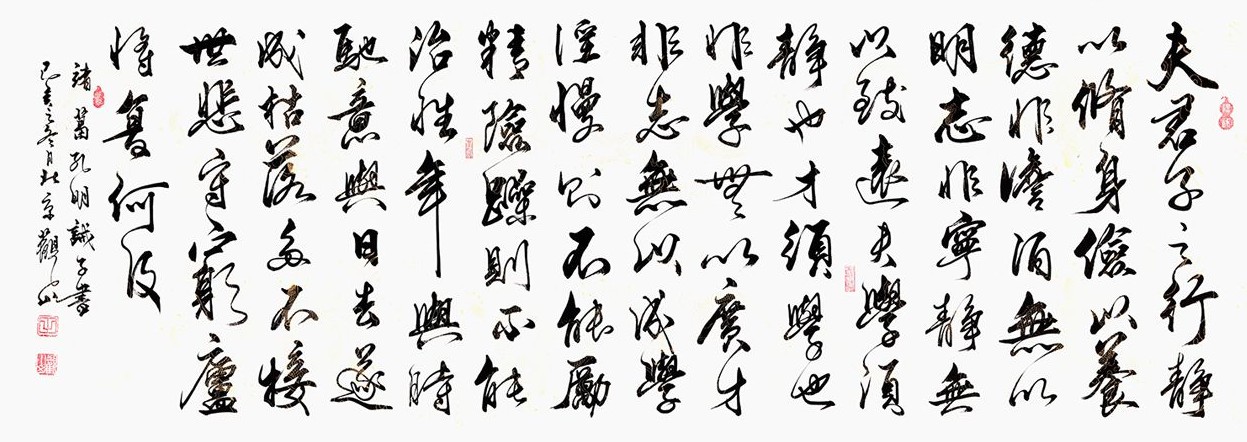 夫君子之行靜
以脩身儉以養
德非澹泊無以
明志非寧靜無
以致遠夫學須
靜也才須學也
非學無以廣才
非志無以成學
淫慢則不能勵
精險躁則不能
治性年與時
馳意與日去遂
成枯落多不接
世悲守窮廬
將复何及
諸葛孔明誡子書
己亥之冬月北京觀